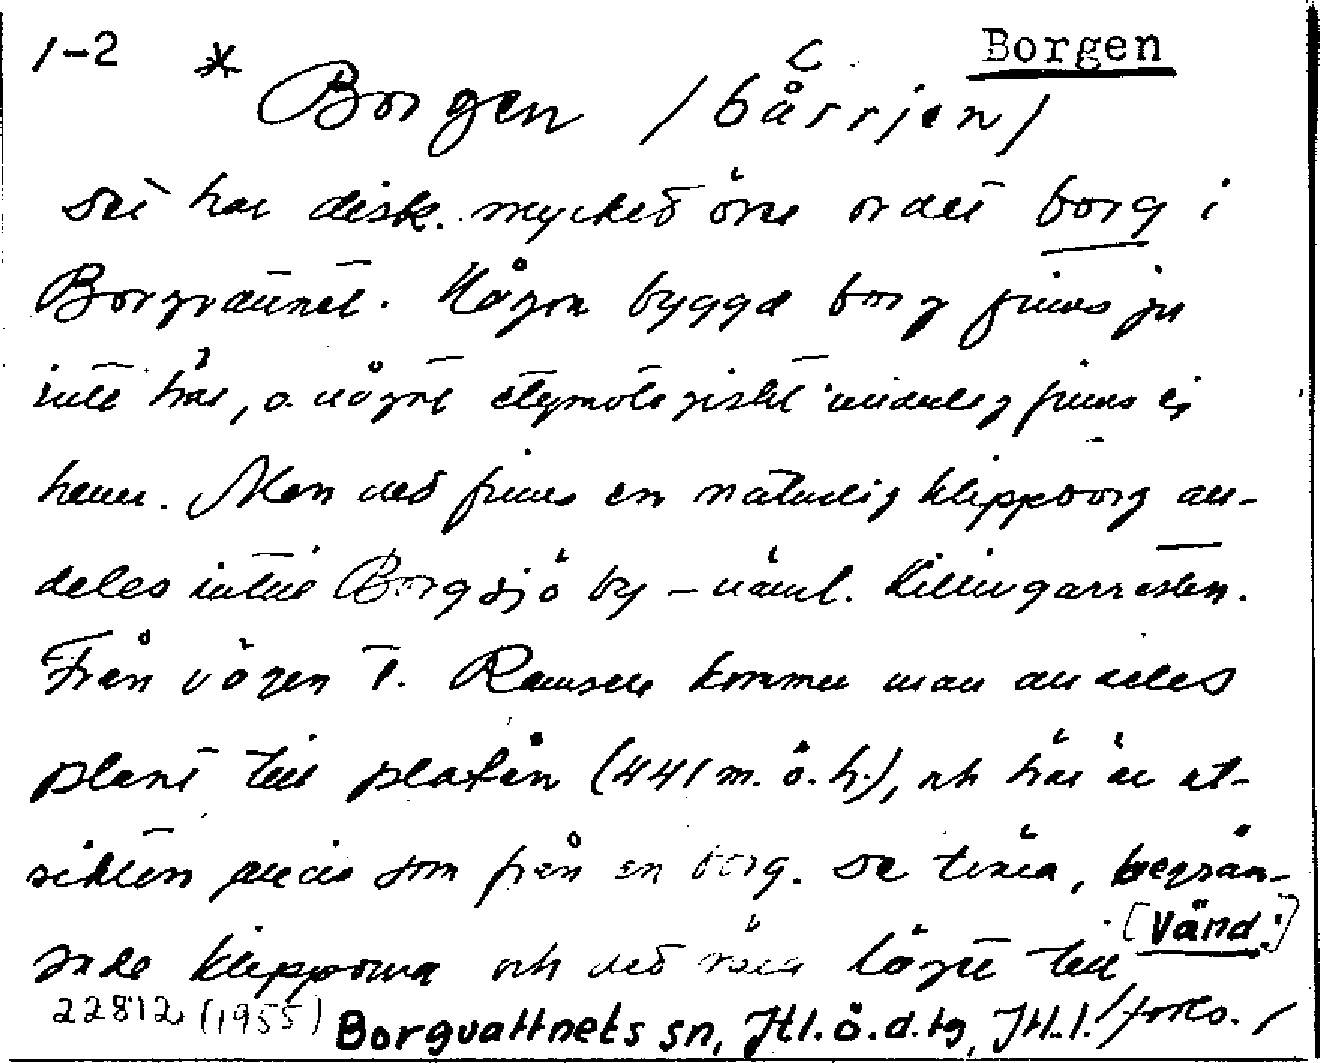 1-2 * Borgen
Borgen /bårrjen/
Det har disk. mycket öve ordet borg i
Borgvattnet. Någon byggd borg finns ju
inte här, o. något etymologiskt underlag finns ej
heller. Men det finns en naturlig klippborg all-
deles intill Borgsjö by – nämt. Killingarresten.
Från vägen t. Ramsele kommer man alldeles
plant till platån (441 m. ö. h.), och här är ut-
sikten precis som från en borg. De tvära, begrän-
sade klipporna och det når högt till
[Vänd:]
22812 (1955) Borgvattnets sn, Jtl.ö.d.tg, Jtl.l. /forts./